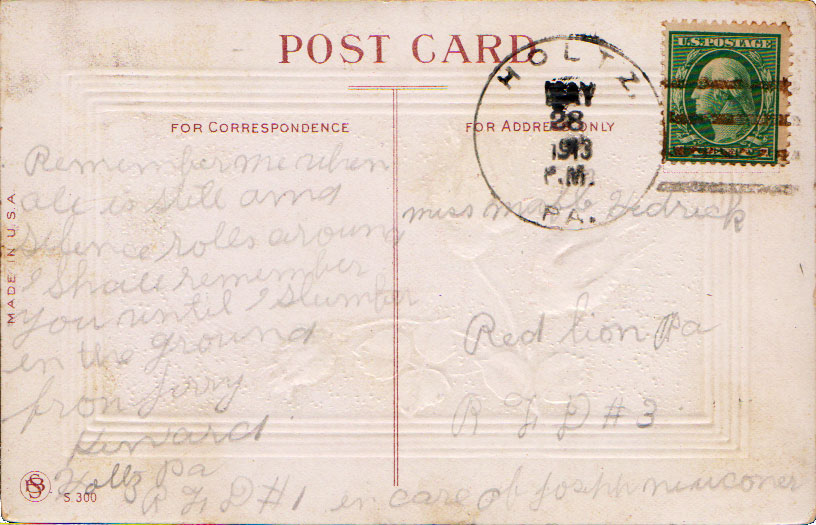 POST CARD
HOLTZ,
MAY
28
1913
P.M.
PA.
U.S. POSTAGE
FOR CORRESPONDENCE
FOR ADDRESS ONLY
MADE IN U.S.A.
Remember me when
all is still and
Silence rolls around
I Shall remember
you until I Slumber
in the ground
from
Holtz Pa
R F D #1 in care of
miss Hedrick
Red lion Pa
R F D #3
S. 300